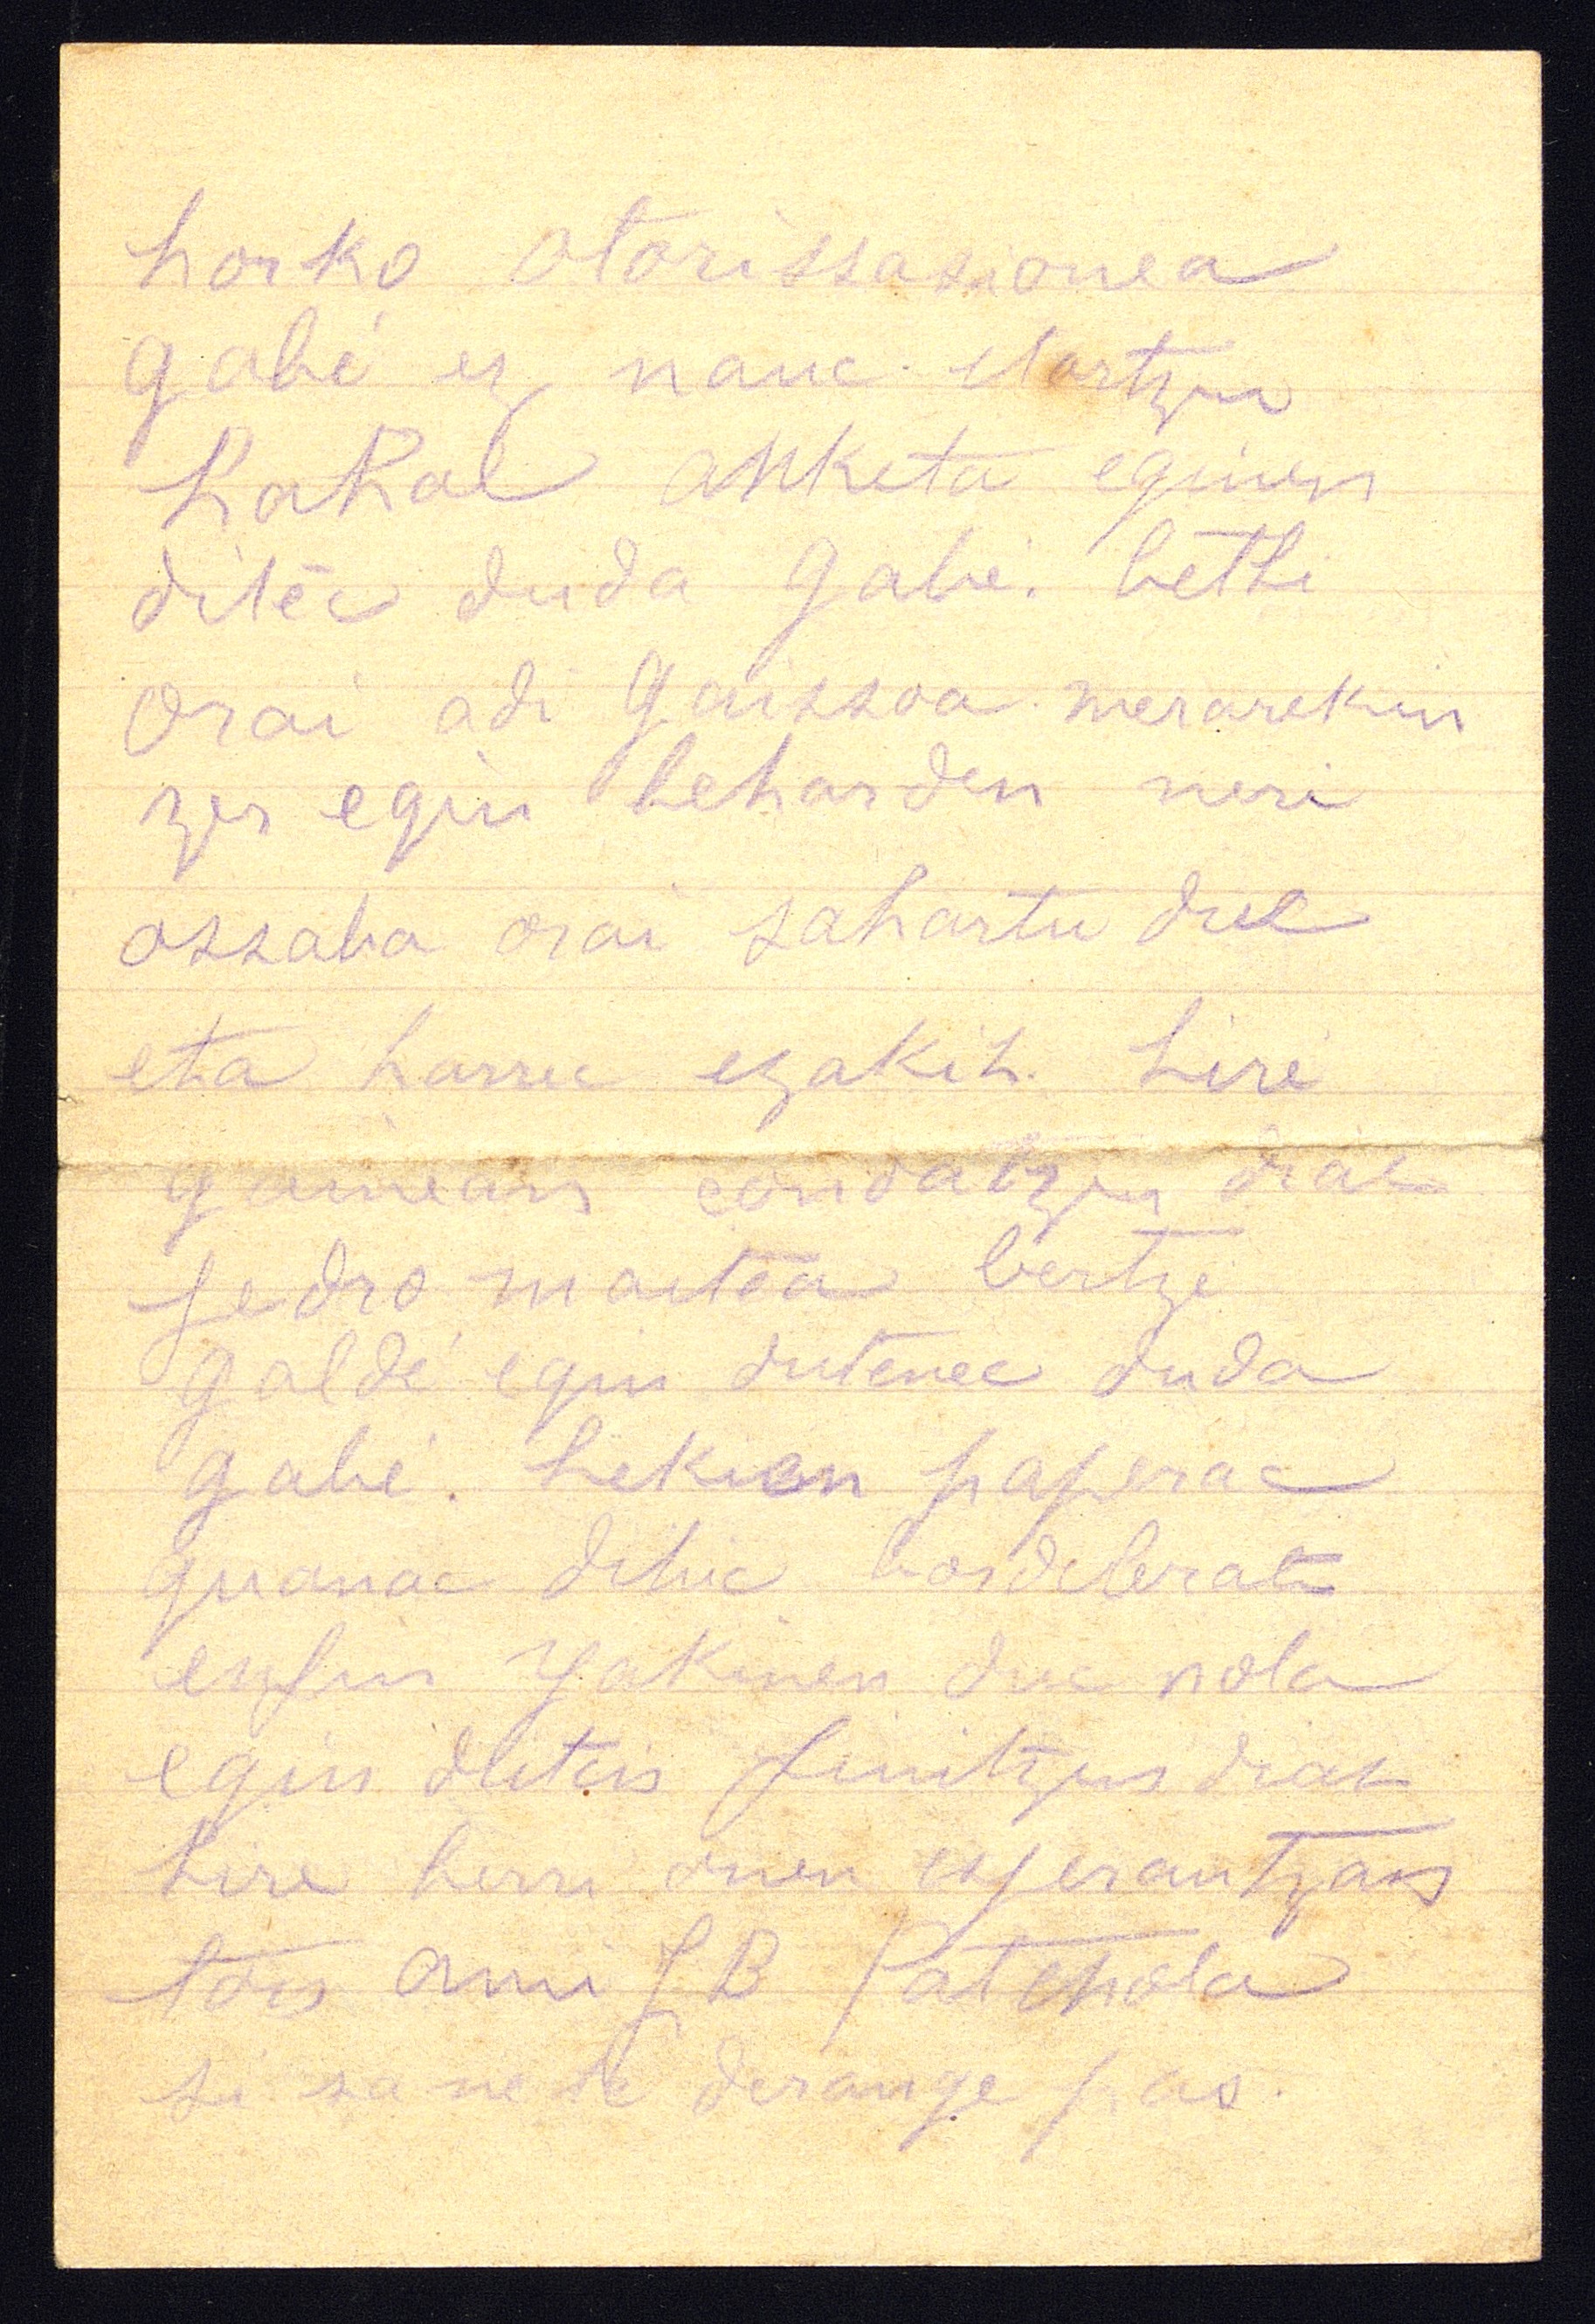 horko otorissasionea
gabé ez nauc. uſartzen
hahal anketa eginen
ditēc duda gabé. bethi
orai adi gaissoa. merarekin
zer egin beharden neri
ossaba orai sahartu duc
eta harrec ezakih. hiré
gainean condatzen diat
Pedro maitea bertze
galdé egin dutenec duda
gabé. hekien paperac
guanac dituc bordelerat
enfin yakinen duc nola
egin duten finitzen diat
hire berri onen esperantzan
ton ami J B Patchola
si sa ne te derange pas.